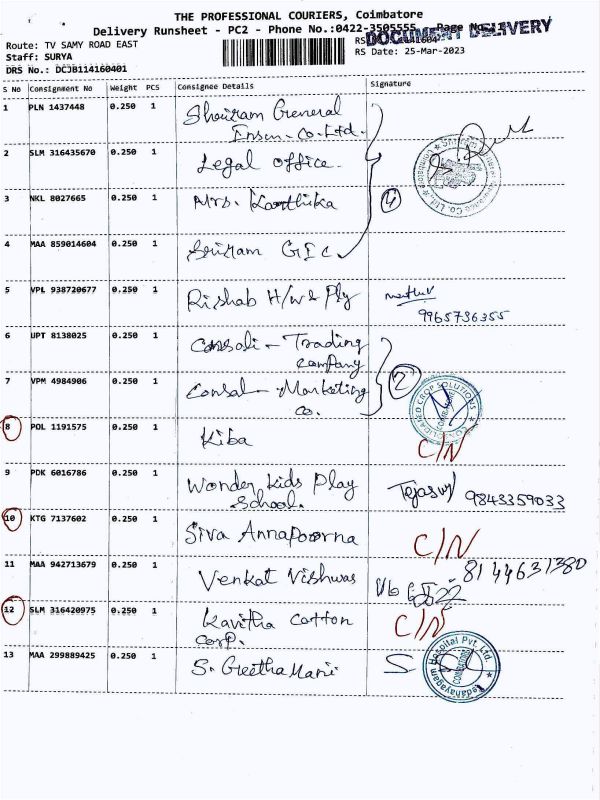 THE PROFESSIONAL COURIERS, Coimbatore
Delivery Runsheet - PC2 - Phone No.:0422-3505555
DOCUMENT DELIVERY
Route: TV SAMY ROAD EAST
Staff: SURYA
RS Date: 25-Mar-2023
DRS No.: DCJB114160401
S No Consignment No Weight PCS Consignee Details Signature
1 PLN 1437448 0.250 1 Shriram General
Insu. Co. Ltd.
2 SLM 316435670 0.250 1 Legal office.
3 NKL 8027665 0.250 1 Mrs. Karthika
4
4 MAA 859014604 0.250 1 Sriram GIC
5 VPL 938720677 0.250 1 Rishab H/w & Ply
9965736355
6 UPT 8138025 0.250 1 Consoli - Trading
company
2
7 VPM 4984906 0.250 1 Consol - Marketing
co.
CONSOLIDATED CROP SOLUTIONS
8 POL 1191575 0.250 1 Kiba C/N
9 PDK 6016786 0.250 1 Wonder kids Play
School. 9843359033
10 KTG 7137602 0.250 1 Siva Annapoorna C/N
11 MAA 942713679 0.250 1 Venkat Vishwas 8144631380
12 SLM 316420975 0.250 1 Kavitha Cotton
Corp. C/N
13 MAA 299889425 0.250 1 S. Geetha Mani
Hospital Pvt. Ltd.